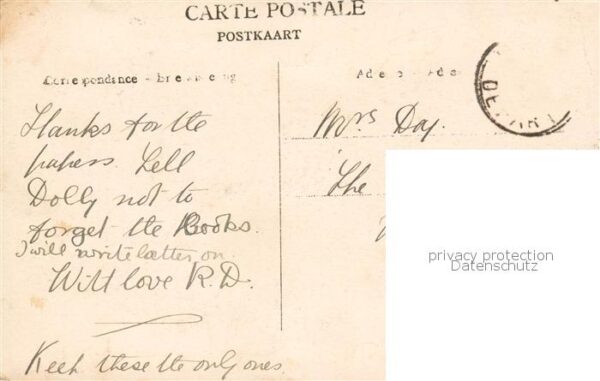 CARTE POSTALE
POSTKAART
Correspondance
Thanks for the
papers. Tell
Dolly not to
forget the Books.
I will write latter on
With love R.D.
Keep these the only ones
Mrs Day.
The
DEPART
privacy protection
Datenschutz